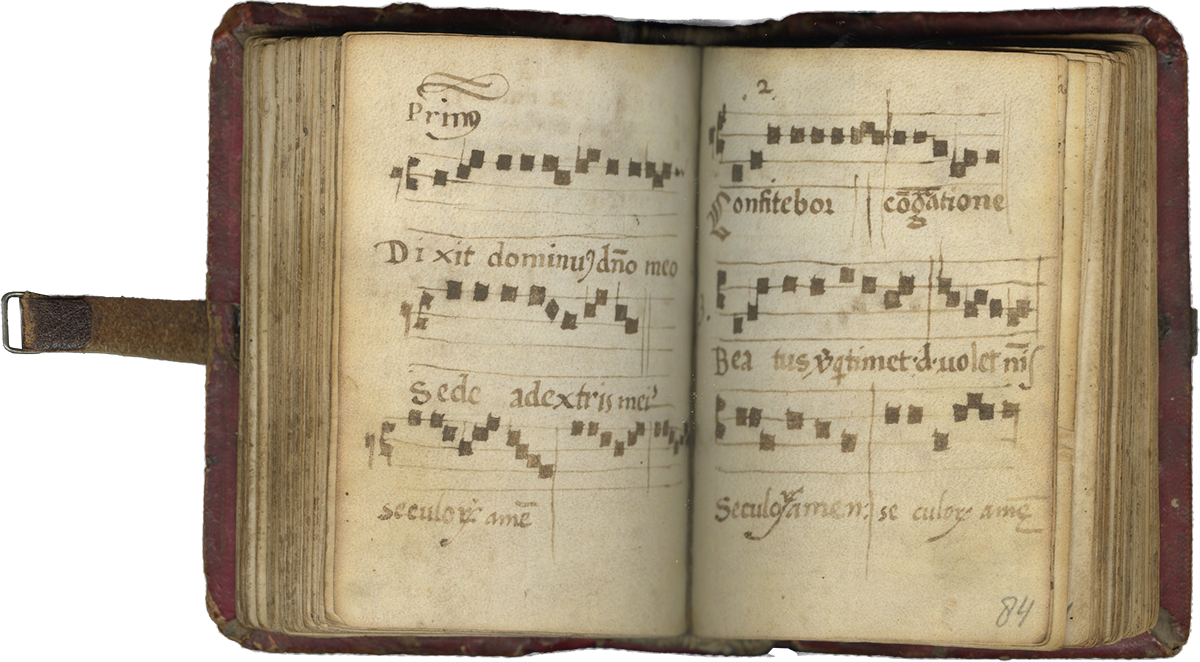 Primᰍ
Dixit dominus dn̄o meo
Sede adextris meis
seculoꝝ amē
2
Confitebor cōg̃atione
3.
Beatus timet·d·uolet
Seculoꝝ amen. seculoꝝ amē
84